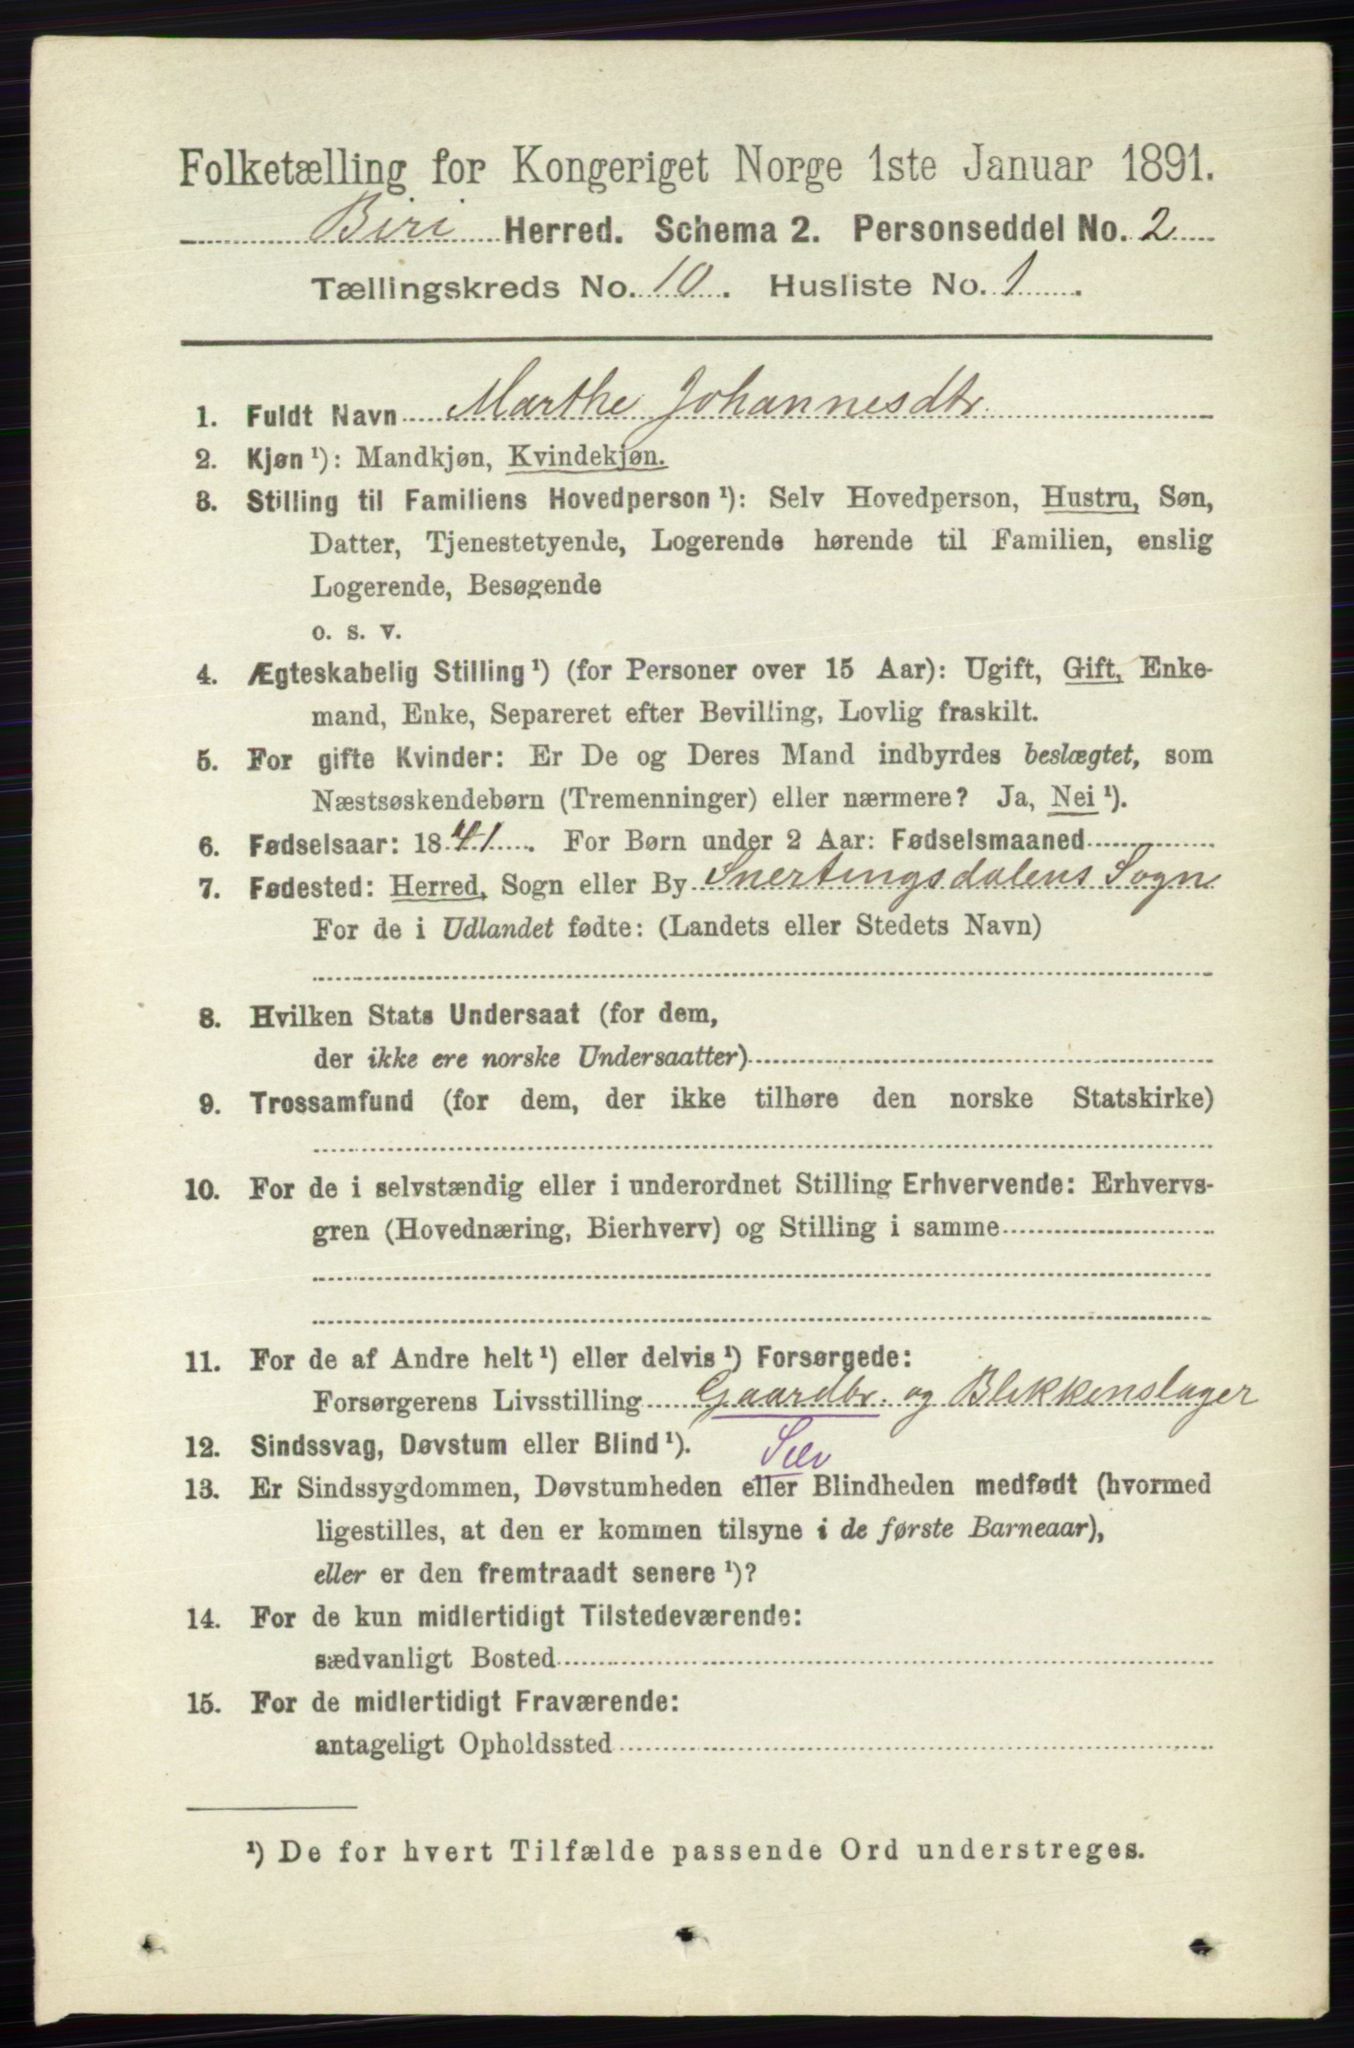 Folketælling for Kongeriget Norge 1ste Januar 1891.
Biri Herred. Schema 2. Personseddel No. 2
Tællingskreds No. 10. Husliste No. 1.
1. Fuldt Navn Marthe Johannesdtr.
2. Kjøn ¹): Mandkjøn, Kvindekjøn.
3. Stilling til Familiens Hovedperson ¹): Selv Hovedperson, Hustru, Søn,
Datter, Tjenestetyende, Logerende hørende til Familien, enslig
Logerende, Besøgende
o. s. v.
4. Ægteskabelig Stilling ¹) (for Personer over 15 Aar): Ugift, Gift, Enke-
mand, Enke, Separeret efter Bevilling, Lovlig fraskilt.
5. For gifte Kvinder: Er De og Deres Mand indbyrdes beslægtet, som
Næstsøskendebørn (Tremenninger) eller nærmere? Ja, Nei ¹).
6. Fødselsaar: 1841. For Børn under 2 Aar: Fødselsmaaned
7. Fødested: Herred, Sogn eller By Snertingsdalens Sogn
For de i Udlandet fødte: (Landets eller Stedets Navn)
8. Hvilken Stats Undersaat (for dem,
der ikke ere norske Undersaatter)
9. Trossamfund (for dem, der ikke tilhøre den norske Statskirke)
10. For de i selvstændig eller i underordnet Stilling Erhvervende: Erhvervs-
gren (Hovednæring, Bierhverv) og Stilling i samme
11. For de af Andre helt ¹) eller delvis ¹) Forsørgede:
Forsørgerens Livsstilling Gaardbr. og Blikkenslager
12. Sindssvag, Døvstum eller Blind ¹).
13. Er Sindssygdommen, Døvstumheden eller Blindheden medfødt (hvormed
ligestilles, at den er kommen tilsyne i de første Barneaar),
eller er den fremtraadt senere ¹)?
14. For de kun midlertidigt Tilstedeværende:
sædvanligt Bosted
15. For de midlertidigt Fraværende:
antageligt Opholdssted
¹) De for hvert Tilfælde passende Ord understreges.